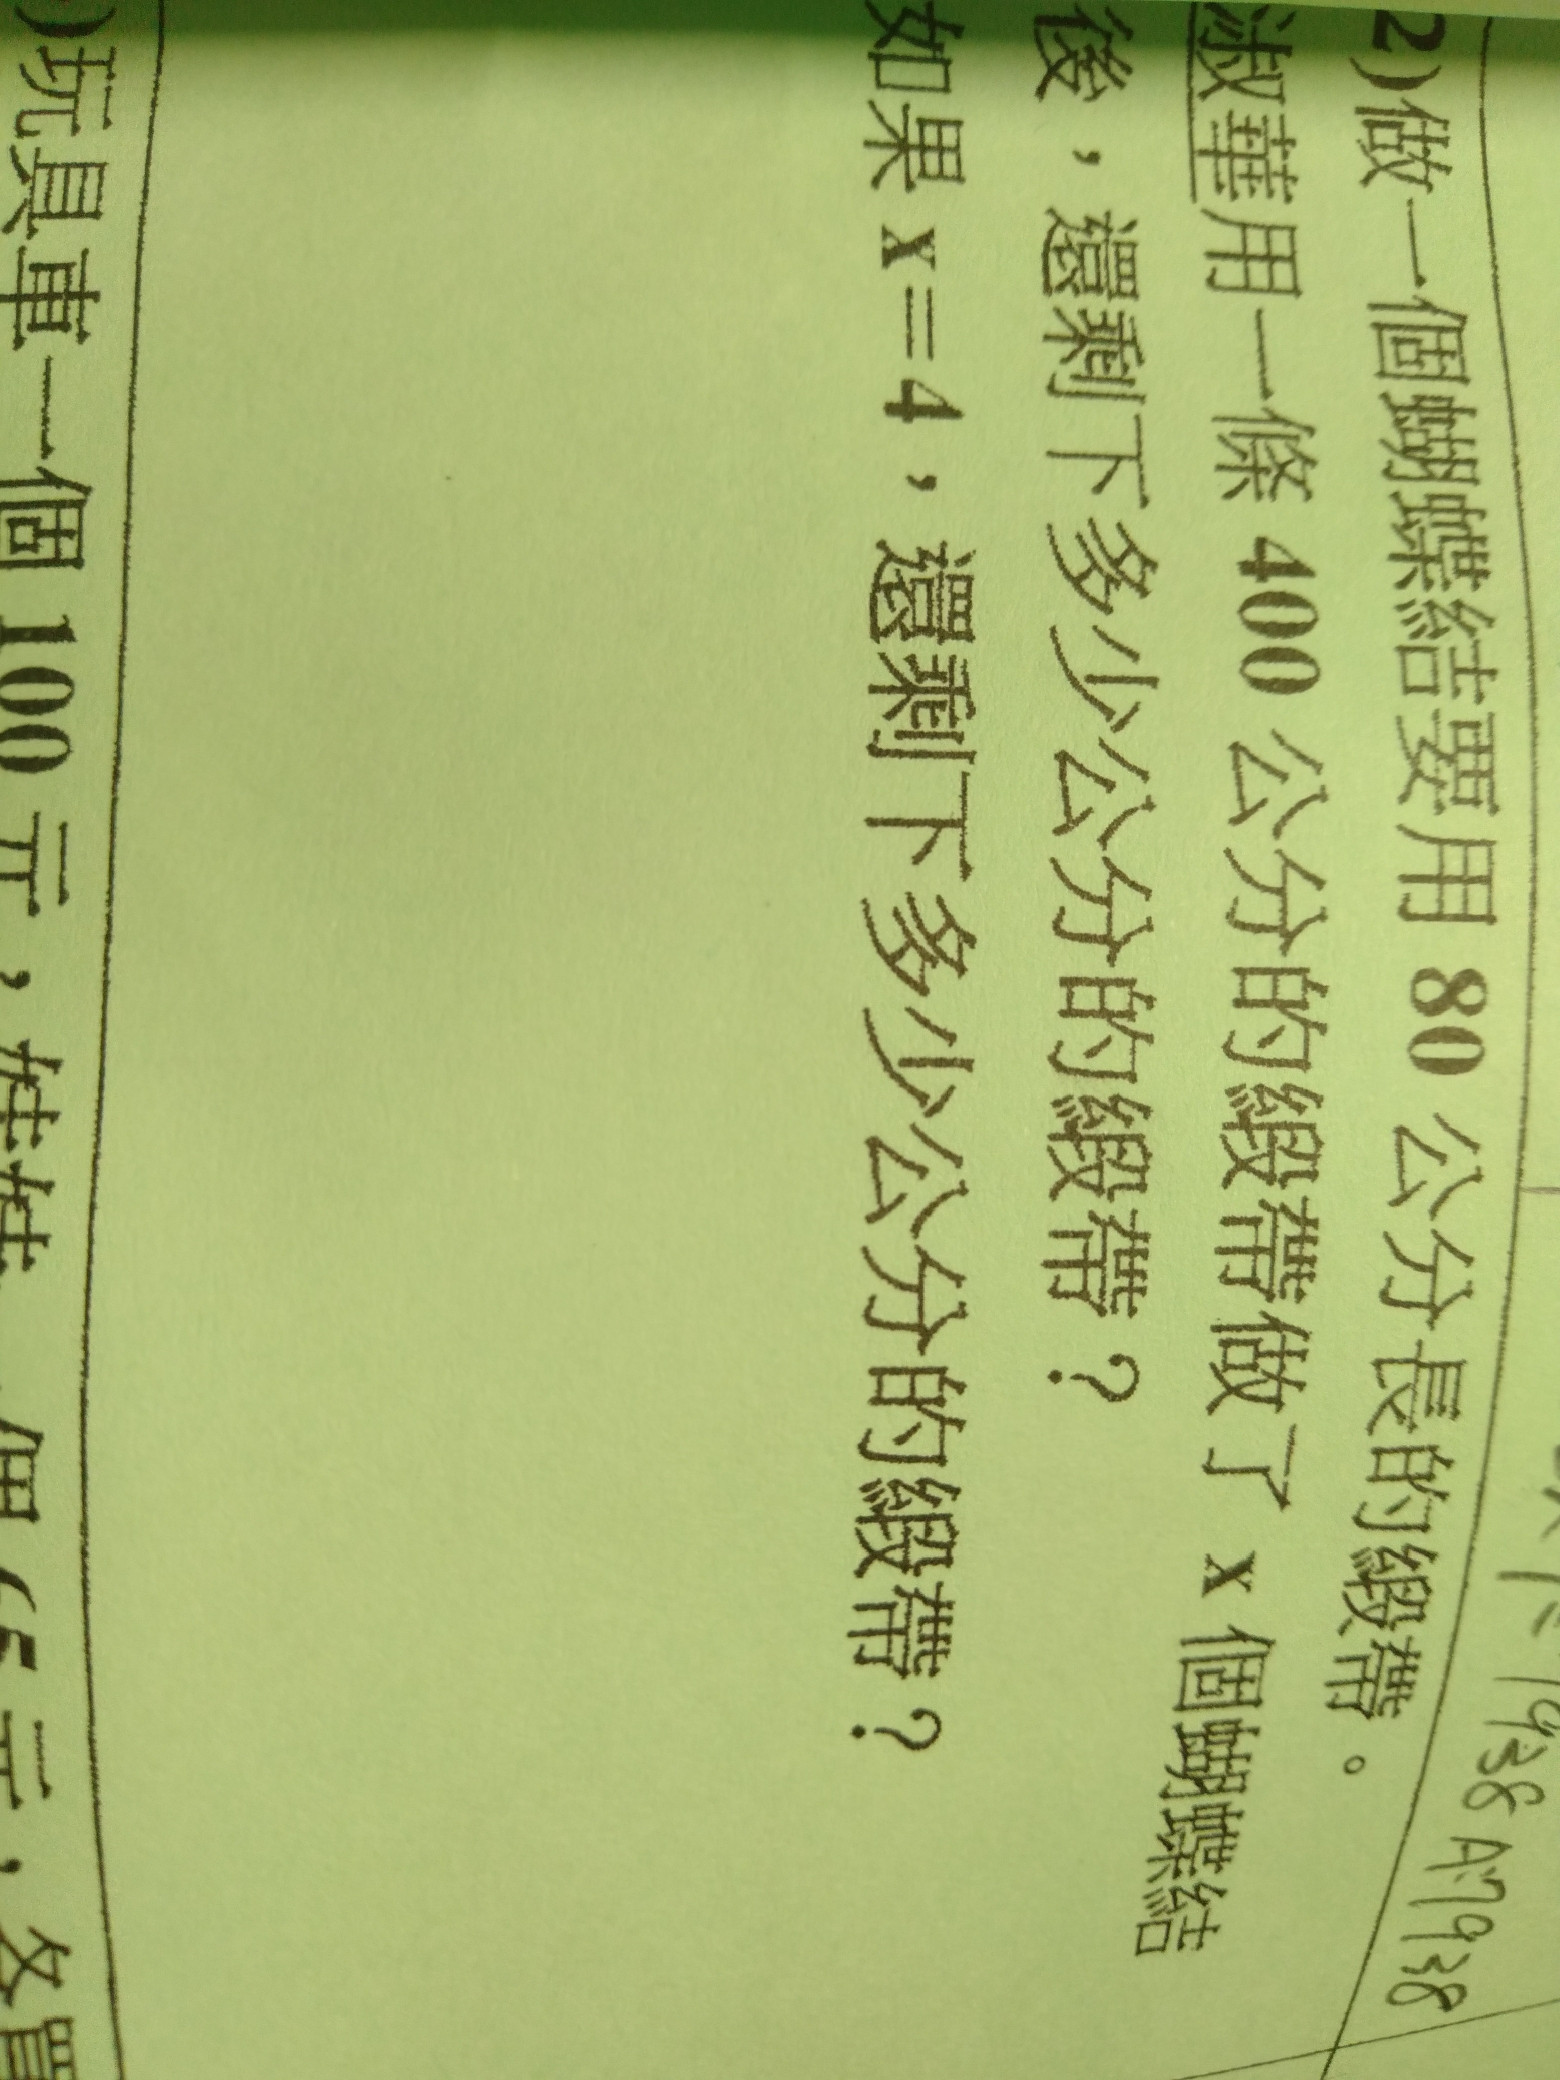 1938 A:7938
2)做一個蝴蝶結要用 80 公分長的緞帶。
淑華用一條 400 公分的緞帶做了 x 個蝴蝶結
後，還剩下多少公分的緞帶？
如果 x=4，還剩下多少公分的緞帶？
)玩具車一個 100 元，娃娃一個 65 元，各買